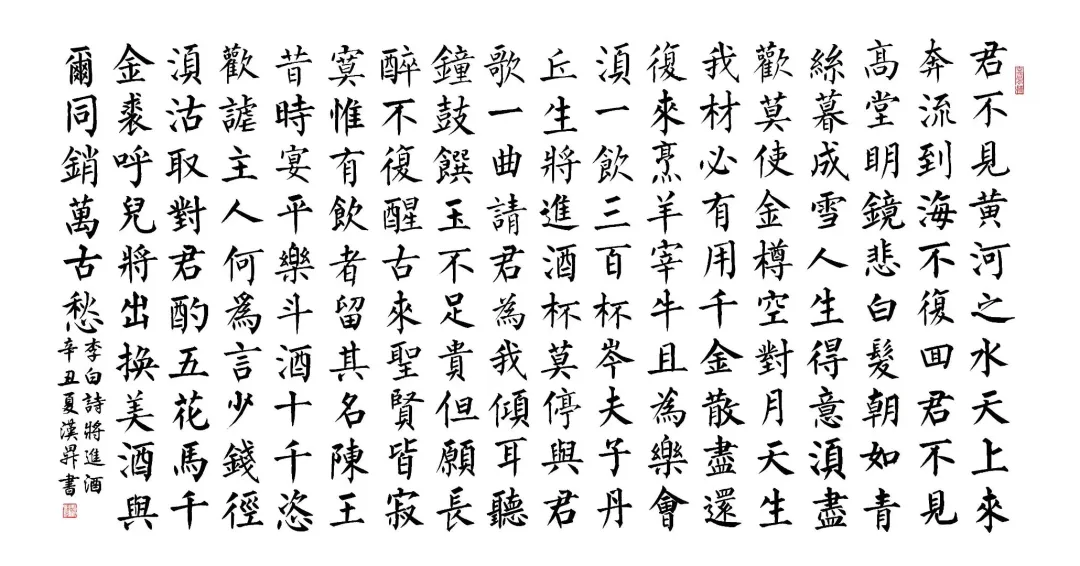 君不見黄河之水天上來
奔流到海不復囬君不見
髙堂眀鏡悲白髮朝如青
絲暮成雪人生得意湏盡
歡莫使金樽空對月天生
我材必有用千金散盡還
復來烹羊宰牛且為樂會
湏一飲三百杯岑夫子丹
丘生將進酒杯莫停與君
歌一曲請君為我傾耳聽
鐘鼓饌玉不足貴但願長
醉不復醒古來聖賢皆寂
寞惟有飲者留其名陳王
昔時宴平樂斗酒十千恣
歡謔主人何爲言少錢徑
湏沽取對君酌五花馬千
金裘呼兒將出換美酒與
爾同銷萬古愁
李白詩將進酒
辛丑夏漢書